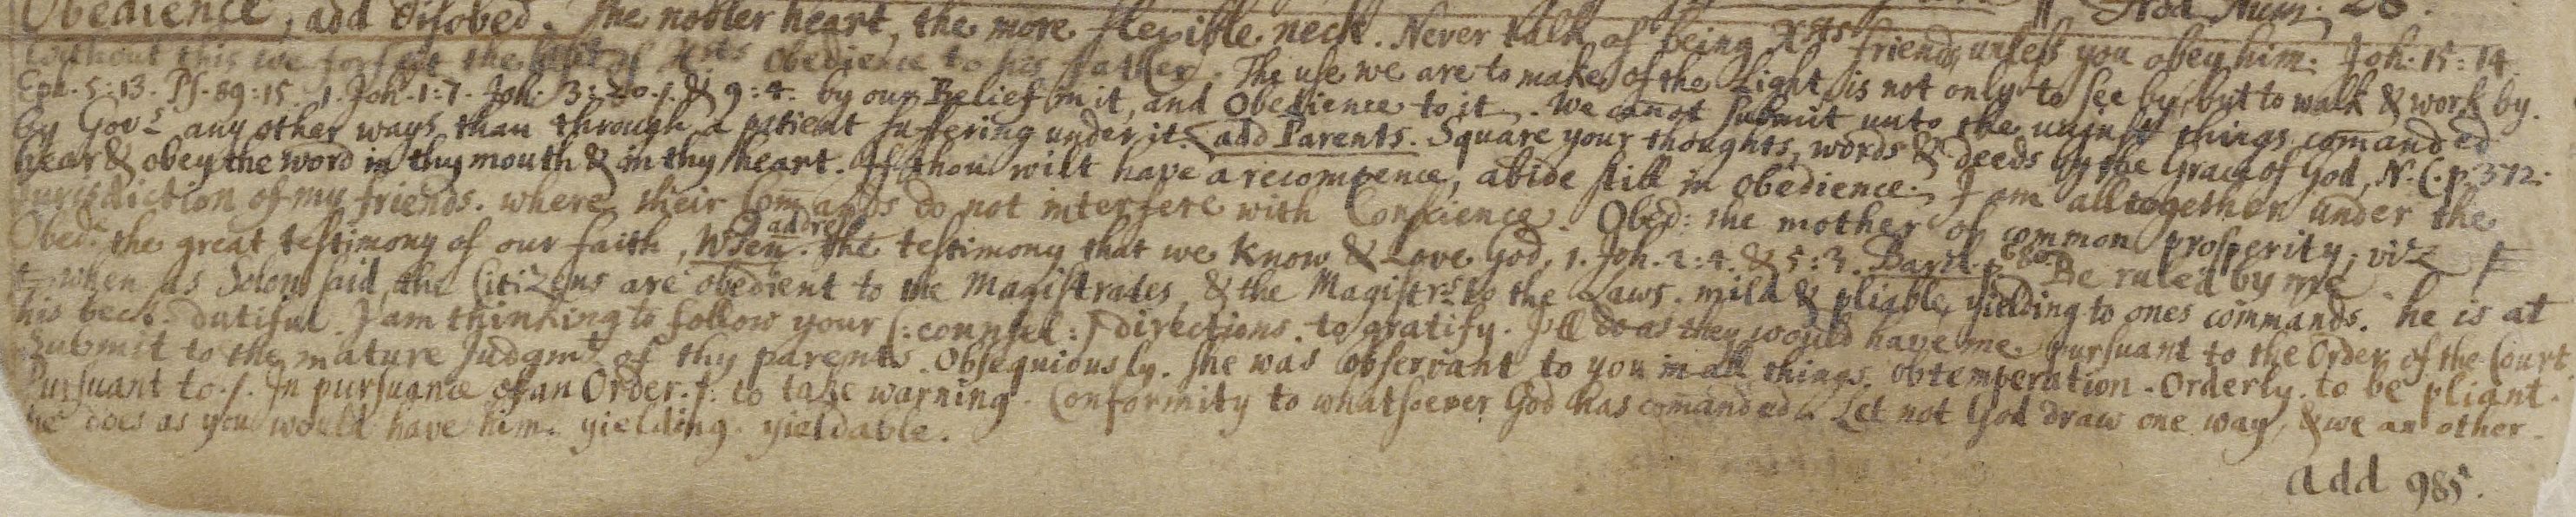 Add Num. 26.
Obedience, add Disobed. The nobler heart, the more flexible neck. Never talk of being Xsts friends, unless you obey him. Joh. 15:14.
without this we forfeit the of Xsts Obedience to his father. The use we are to make of the Light, is not only to see by, but to walk & work by.
Eph. 5:13. Ps. 89:15. 1. Joh. 1:7. Joh. 3:20. f. & 9:4. by our Belief in it, and Obedience to it. We canot submit unto the unjust things comanded
by Govrs any other ways than through a patient suffering under it. add Parents. Square your thoughts, words & deeds by the Grace of God, N.C. p. 372.
hear & obey the word in thy mouth & in thy heart. If thou wilt have a recompence, abide still in obedience. I am alltogether under the
Jurisdiction of my friends. where their Comands do not interfere with Conscience. Obed: the mother of common prosperity, viz ‡
Obedce the great testimony of our faith, Wsen. addre the testimony that we know & Love God, 1. Joh. 2:4. & 5:3. Barcl. p. 680. Be ruled by me.
‡ when as Solon said, the Citizens are obedient to the Magistrates, & the Magistrs to the Laws. mild & pliable, yielding to ones commands. he is at
his beck. dutiful. I am thinking to follow your (: counsel :) directions. to gratify. I'll do as they would have me. pursuant to the Order of the Court.
Submit to the mature Judgmt of thy parents. Obsequiously. She was observant to you in all things. obtemperation. Orderly. to be pliant.
Pursuant to. f. In pursuance of an Order. f. to take warning. Conformity to whatsoever God has comanded. Let not God draw one way, & we an other.
he does as you would have him. yielding. yieldable.
add 985.